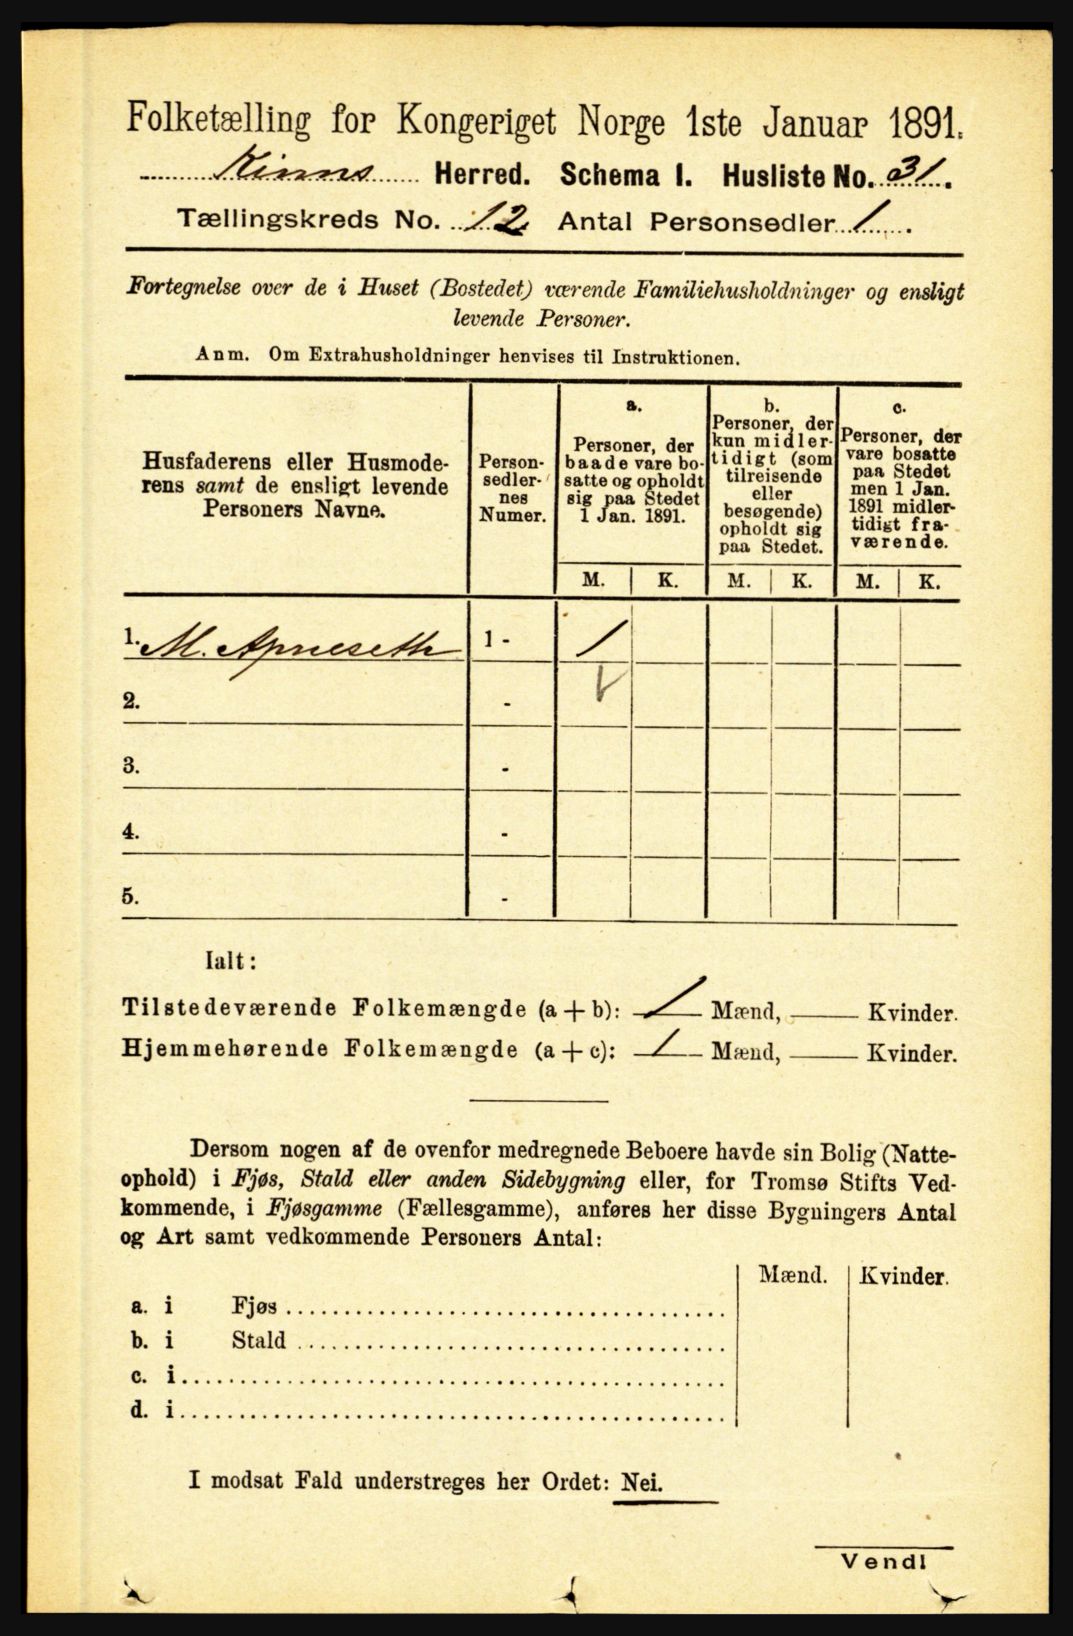 Folketælling for Kongeriget Norge 1ste Januar 1891.
Kinns Herred. Schema I. Husliste No. 31.
Tællingskreds No. 12 Antal Personsedler 1.
Fortegnelse over de i Huset (Bostedet) værende Familiehusholdninger og ensligt
levende Personer.
Anm. Om Extrahusholdninger henvises til Instruktionen.
Husfaderens eller Husmode-
rens samt de ensligt levende
Personers Navne.
Person-
sedler-
nes
Numer.
a.
Personer, der
baade vare bo-
satte og opholdt
sig paa Stedet
1 Jan. 1891.
b.
Personer, der
kun midler-
tidigt (som
tilreisende
eller
besøgende)
opholdt sig
paa Stedet.
c.
Personer, der
vare bosatte
paa Stedet
men 1 Jan.
1891 midler-
tidigt fra-
værende.
M. K. M. K. M. K.
1. M. Apneseth 1 - 1
2. -
3. -
4. -
5. -
Ialt:
Tilstedeværende Folkemængde (a + b): 1 Mænd, Kvinder.
Hjemmehørende Folkemængde (a + c): 1 Mænd, Kvinder.
Dersom nogen af de ovenfor medregnede Beboere havde sin Bolig (Natte-
ophold) i Fjøs, Stald eller anden Sidebygning eller, for Tromsø Stifts Ved-
kommende, i Fjøsgamme (Fællesgamme), anføres her disse Bygningers Antal
og Art samt vedkommende Personers Antal:
Mænd. Kvinder.
a. i Fjøs
b. i Stald
c. i
d. i
I modsat Fald understreges her Ordet: Nei.
Vend!